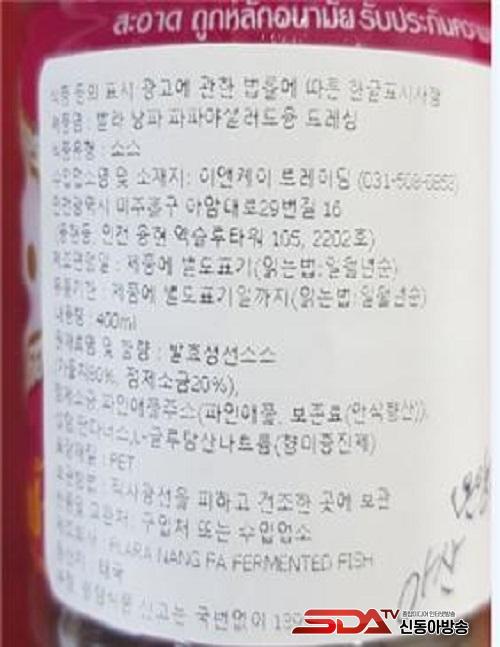 สะอาด ถูกหลักอนามัย รับประกันความ
식품 등의 표시 광고에 관한 법률에 따른 한글표시사항
제품명 : 빨라 낭파 파파야샐러드용 드레싱
식품유형 : 소스
수입업소명 및 소재지: 이앤케이 트레이딩
인천광역시 미추홀구 아암대로29번길 16
(용현동, 인천 용현 엑슬루타워 105, 2202호)
제조연월일 : 제품에 별도표기(읽는법:일월년순)
유통기간 : 제품에 별도표기일까지(읽는법:일월년순)
내용량 : 400ml
원재료명 및 함량 : 발효생선소스
(가물치80%, 정제소금20%),
정제소금,파인애플주소스(파인애플, 보존료(안식향산)),
L-글루탐산나트륨(향미증진제)
용기재질 : PET
보관방법 : 직사광선을 피하고 건조한 곳에 보관
반품및 교환처: 구입처 또는 수입업소
제조회사 : PLARA NANG FA FERMENTED FISH
원산지: 태국
부정, 불량식품 신고는 국번없이
SDATV
종합미디어 인터넷방송
신동아방송